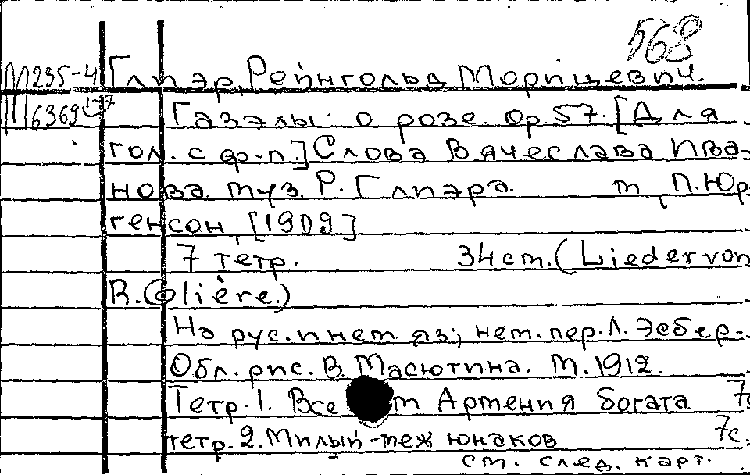 568
М 235-4 Глиэр, Рейнгольд Морицевич.
6369 1-7 Газэлы о розе. Ор. 57. [Для
гол. с ф-п.] Слова Вячеслава Ива-
нова. Муз. Р. Глиэра. М., П. Юр
генсон, [1909]
7 тетр. 34 cm. (Lieder von
R. Glière.)
На рус. и нем. яз.; нем. пер. Л. Эсбер-
Обл. рис. В. Масютина. М. 1912.
Тетр. 1. Все Армения богата 7с
тетр. 2. Милый-меж юнаков 7с.
см. след. карт.